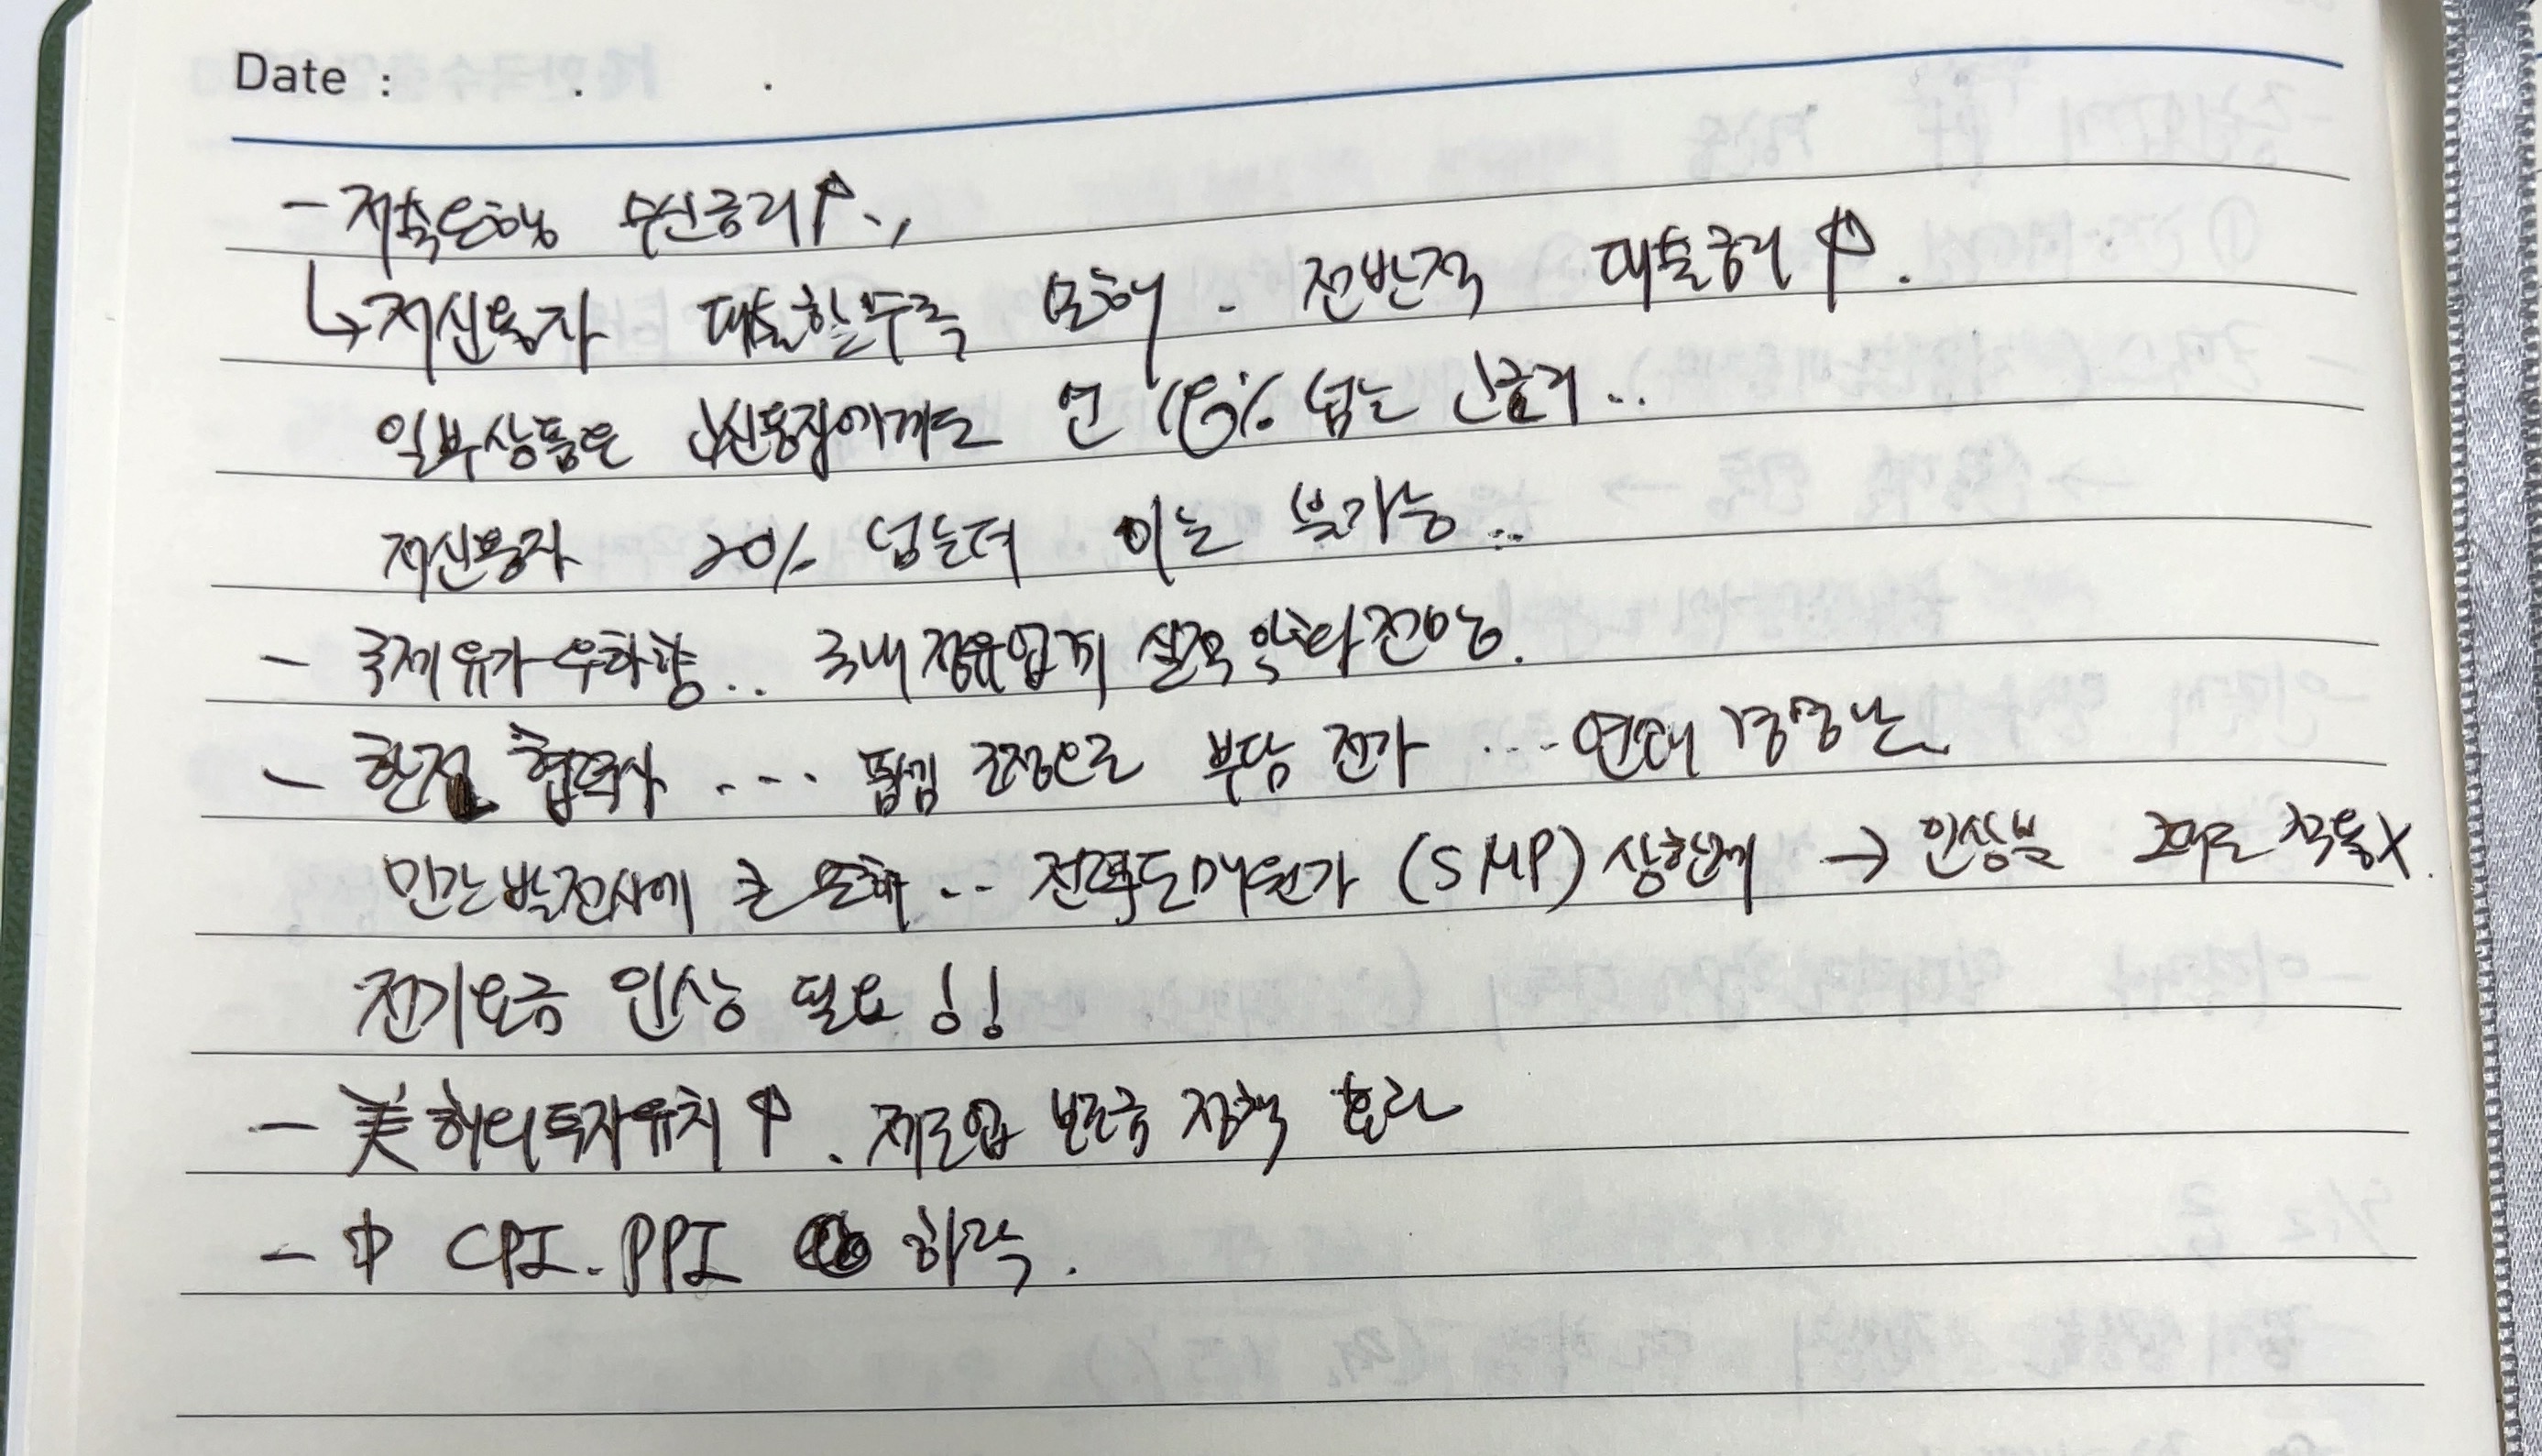 Date : . .
- 저축은행 수신금리↑..
↳ 저신용자 대출할수록 손해. 전반적 대출금리 ↑.
일부상품은 고신용자에게도 연 19% 넘는 금리..
저신용자 20% 넘는데 이는 불가능..
- 국제유가 우하향.. 국내정유업계 실적 악화 전망.
- 한전 협력사 .... 납품 조정으로 부담 전가 .... 연쇄 경영난
민간발전사에 큰 손해.. 전력도매원가 (SMP) 상한제 → 인상분 적용X.
전기요금 인상 필요!!
- 美 해외투자유치↑. 제조업 보조금 정책 효과
- 中 CPI. PPI 하락.